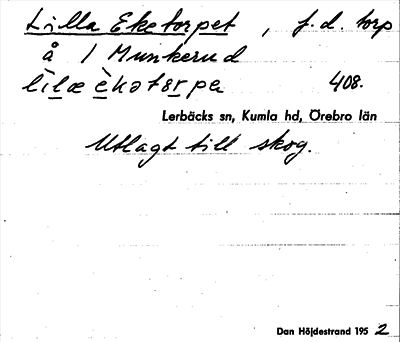 Lilla Eketorpet, f.d. torp
å 1 Munkerud
lìlæ èkətɐrpa 408.
Lerbäcks sn, Kumla hd, Örebro län
Utlagt till skog.
Dan Höjdestrand 1952